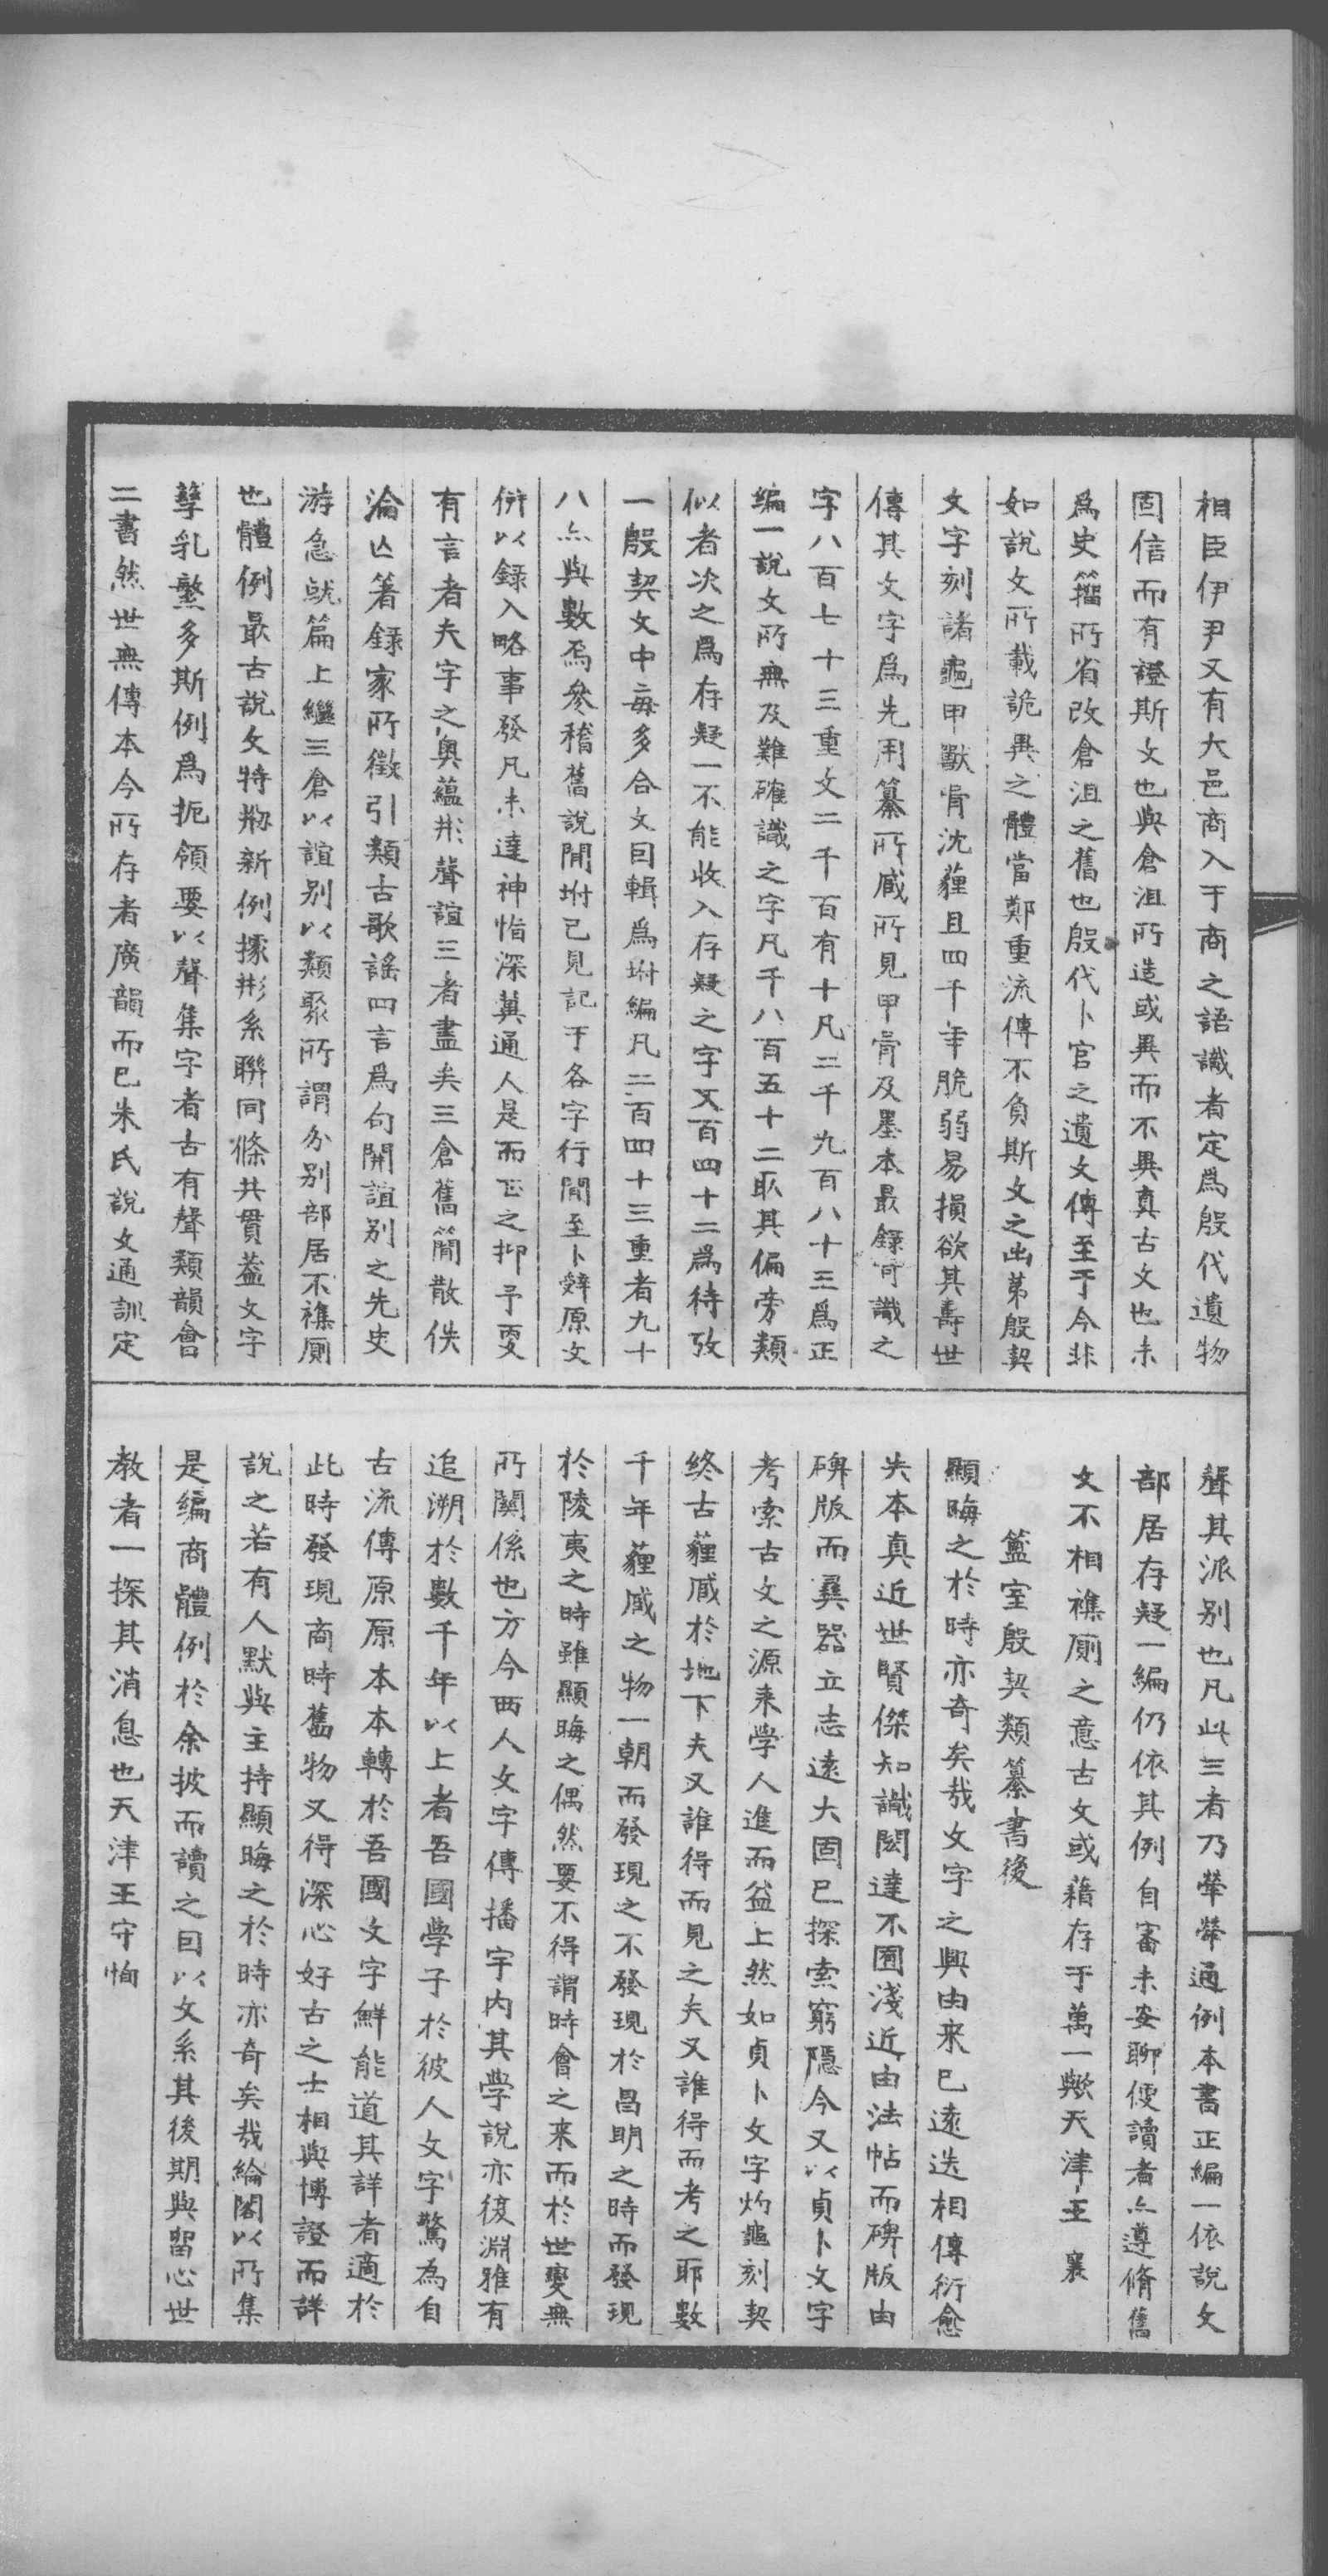 相臣伊尹又有大邑商入于商之語識者定爲殷代遺物
固信而有證斯文也與倉沮所造或異而不異真古文也未
爲史籀所省改倉沮之舊也殷代卜官之遺文傳至于今非
如說文所載詭異之體當鄭重流傳不負斯文之出苐殷契
文字刻諸龜甲獸骨沈薶且四千年脆弱易損欲其壽世
傳其文字爲先用纂所臧所見甲骨及墨本最錄可識之
字八百七十三重文二千百有十凡二千九百八十三爲正
編一說文所無及難確識之字凡千八百五十二取其偏旁類
似者次之爲存疑一不能收入存疑之字又百四十二爲待攷
一殷契文中每多合文囙輯爲坿編凡二百四十三重者九十
八亦與數焉參稽舊說閒坿己見記于各字行閒至卜辭原文
倂以錄入略事發凡未達神恉深冀通人是而正之抑予更
有言者夫字之奧蘊形聲誼三者盡矣三倉舊簡散佚
淪亾著錄家所徵引類古歌謠四言爲句開誼別之先史
游急就篇上繼三倉以誼別以類聚所謂分別部居不襍廁
也體例最古說文特刱新例據形系聯同條共貫葢文字
孳乳繁多斯例爲扼領要以聲集字者古有聲類韻會
二書然世無傳本今所存者廣韻而已朱氏說文通訓定
聲其派別也凡此三者乃犖犖通例本書正編一依說文
部居存疑一編仍依其例自審未安聊便讀者亦遵脩舊
文不相襍廁之意古文或藉存于萬一歟天津王襄
簠室殷契類纂書後
顯晦之於時亦奇矣哉文字之興由來已遠迭相傳衍愈
失本真近世賢傑知識閎達不囿淺近由法帖而碑版由
碑版而彝器立志遠大固已探索窮隱今又以貞卜文字
考索古文之源来学人進而益上然如貞卜文字灼龜刻契
終古薶臧於地下夫又誰得而見之夫又誰得而考之耶數
千年薶臧之物一朝而發現之不發現於昌明之時而發現
於陵夷之時雖顯晦之偶然要不得謂時會之来而於世變無
所關係也方今西人文字傳播宇內其學說亦復淵雅有
追溯於數千年以上者吾國學子於彼人文字驚為自
古流傳原原本本轉於吾國文字鮮能道其詳者適於
此時發現商時舊物又得深心好古之士相與博證而詳
說之若有人默與主持顯晦之於時亦奇矣哉綸閣以所集
是編商體例於余披而讀之囙以文系其後期與留心世
教者一探其消息也天津王守恂